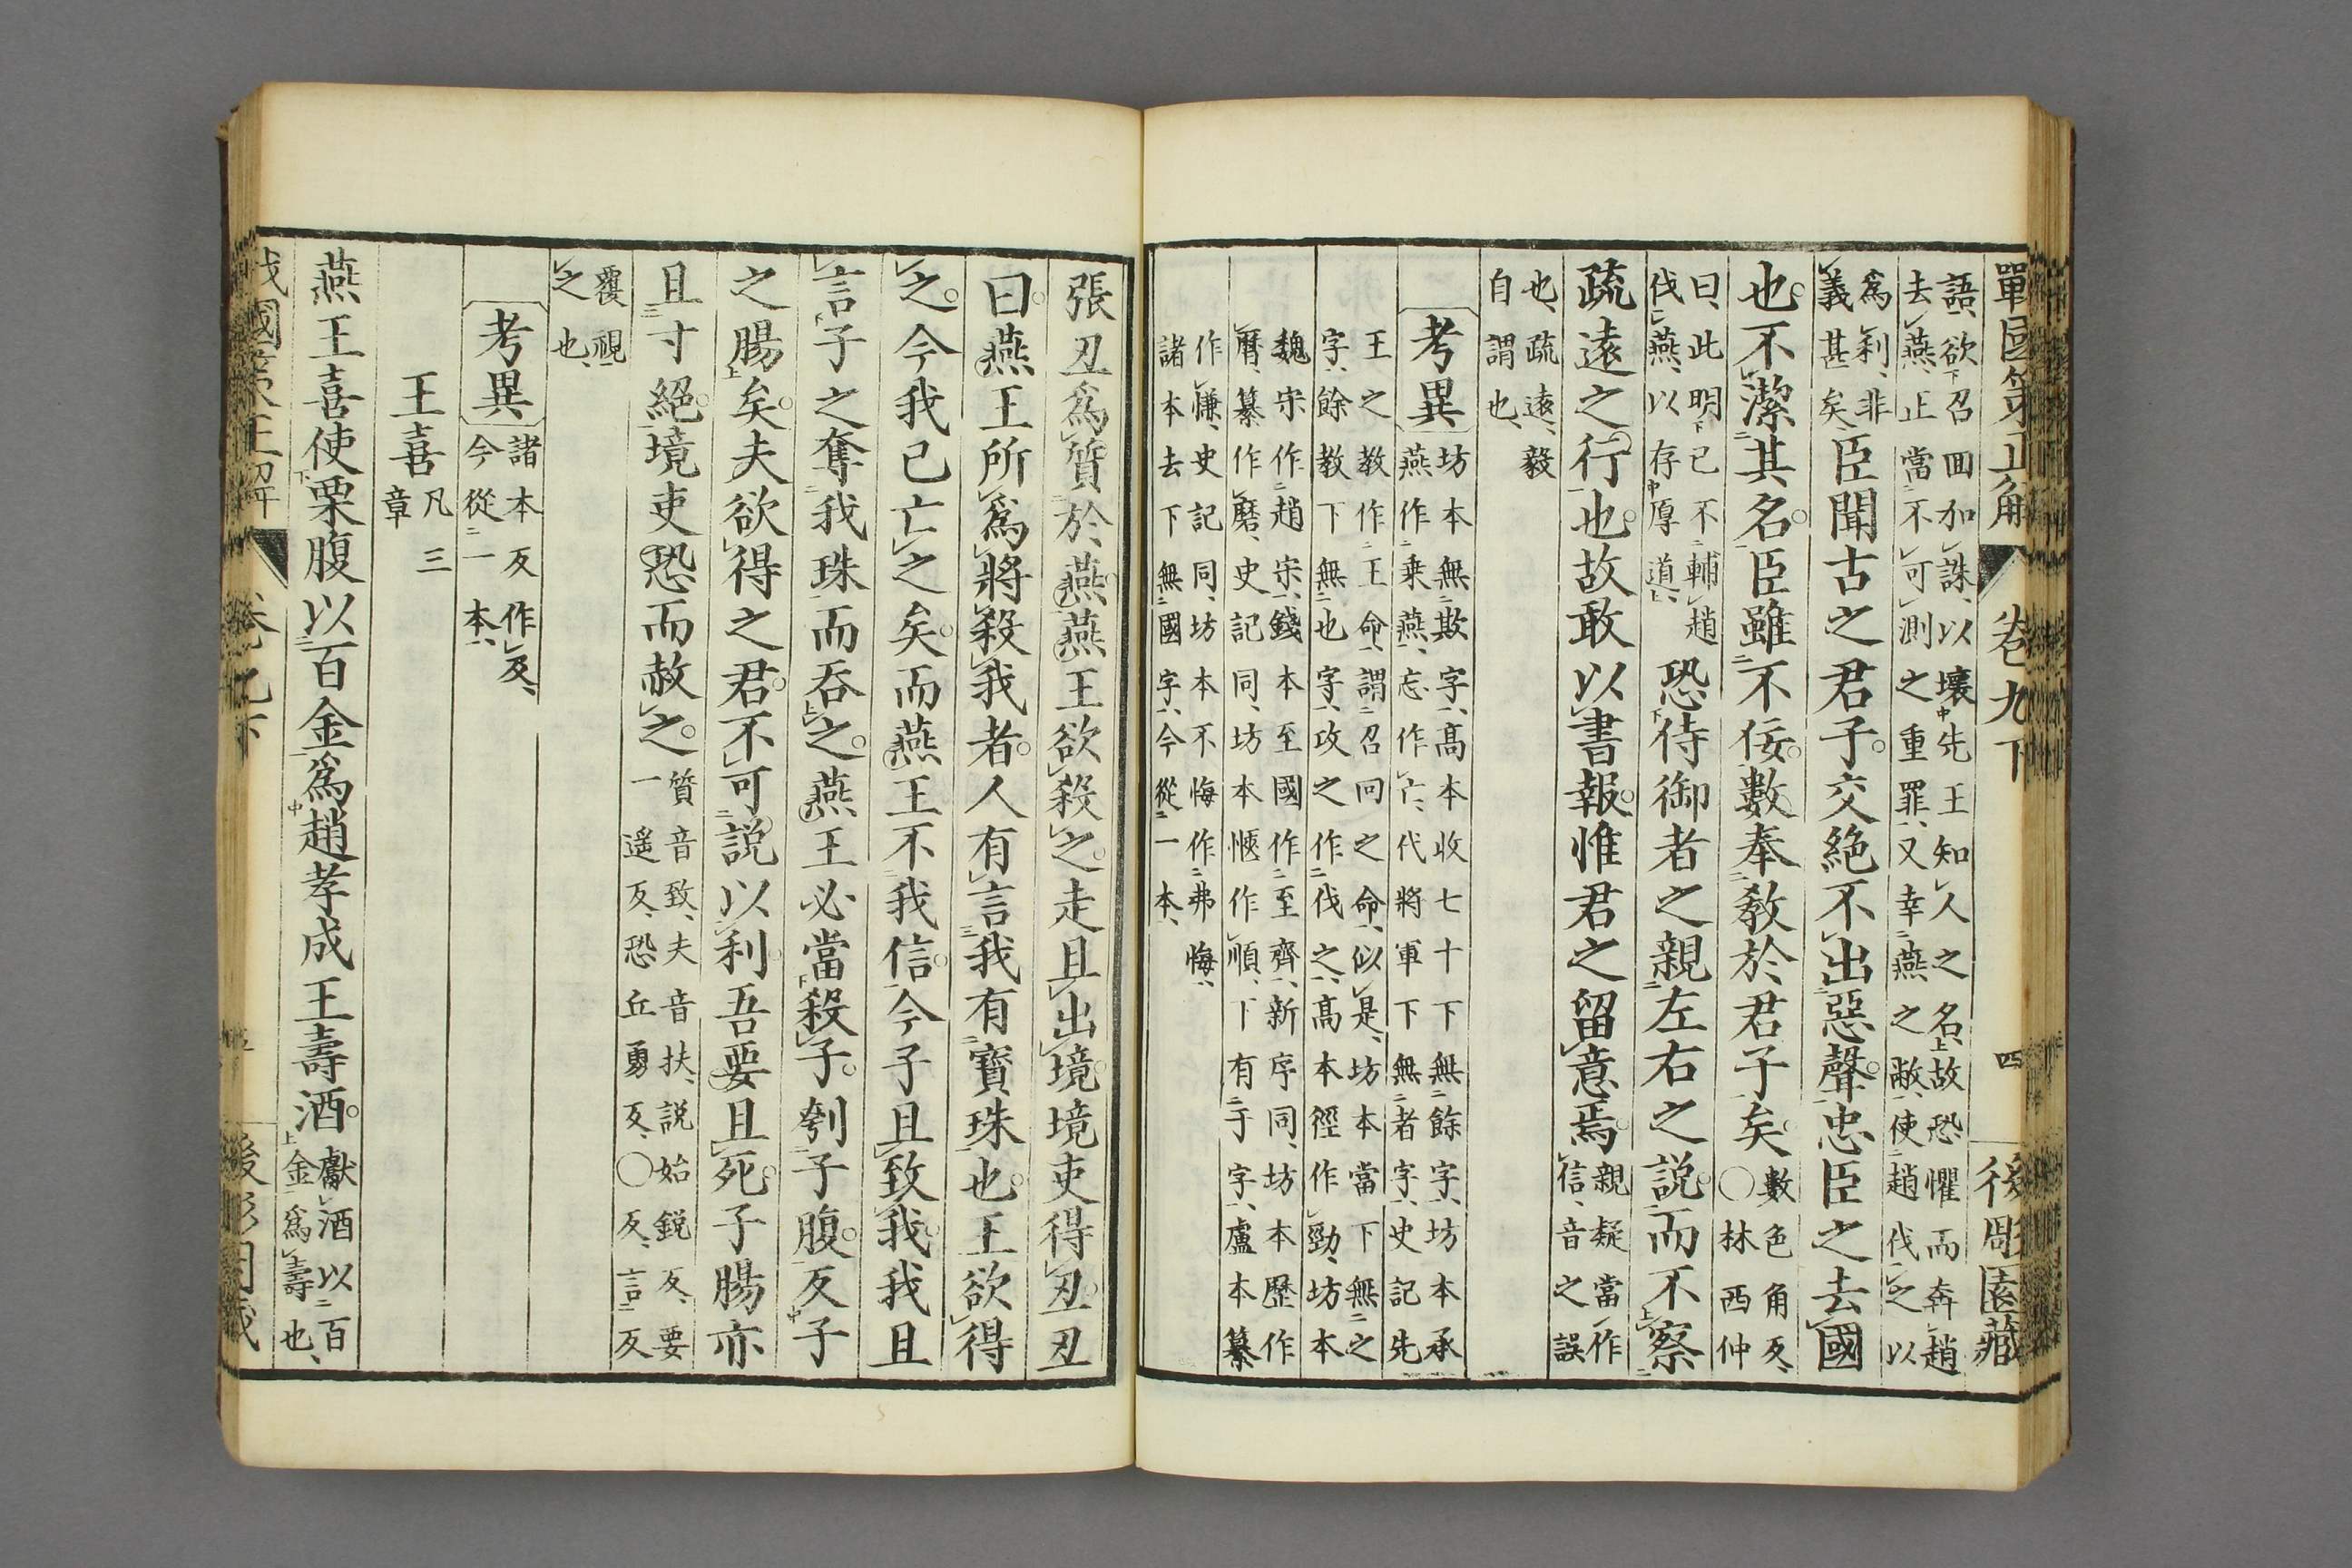 卷九下
四
後彫園藏
語、欲召囬加誅、以壞先王知人之名、故恐懼而奔趙
去燕、正當不可測之重罪、又幸燕之敝、使趙伐之以
爲利、非
義甚矣、
臣聞古之君子。交絶不出惡聲。忠臣之去國
也。不潔其名。臣雖不佞。數奉敎於君子矣。
數色角反、
〇林西仲
曰、此明已不輔趙
伐燕、以存厚道、
恐侍御者之親左右之説。而不察
疏遠之行也。故敢以書報。惟君之留意焉。
親疑當作
信、音之誤
也、疏遠、毅
自謂也、
考異
坊本無欺字、髙本收七十下無餘字、坊本承
燕作乘燕、忘作亡、代將軍下無者字、史記先
王之教作王命、謂召回之命、似是、坊本當下無之
字、餘教下無也字、攻之作伐之、髙本徑作勁、坊本
魏宋作趙宋、錢本至國作至齊、新序同、坊本歷作
曆、纂作磨、史記同、坊本愜作順、下有于字、盧本纂
作慊、史記同、坊本不悔作弗悔、
諸本去下無國字、今從一本、
張丑爲質於燕。燕王欲殺之。走且出境。境吏得丑。丑
曰。燕王所爲將殺我者。人有言我有寶珠也。王欲得
之。今我已亡之矣。而燕王不我信。今子且致我。我且
言子之奪我珠而吞之。燕王必當殺子。刳子腹。反子
之腸矣。夫欲得之君。不可説以利。吾要且死。子腸亦
且寸絕。境吏恐而赦之。
質音致、夫音扶、説始鋭反、要
一遥反、恐丘勇反、〇反、言反
覆視
之也、
考異
諸本反作反、
今從一本、
王喜
凡三
章
燕王喜使栗腹以百金爲趙孝成王壽酒。
獻酒以百
金爲壽也、